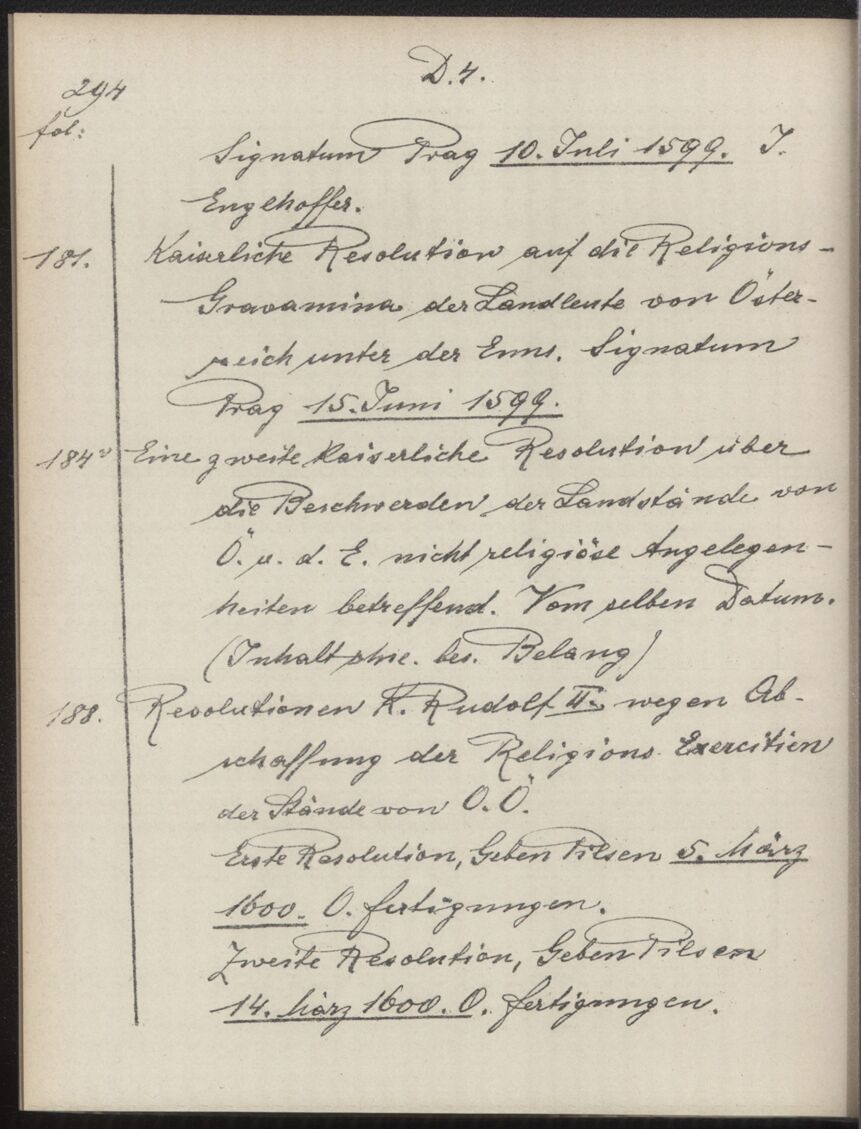 D.4.
294
fol:
Signatum Prag 10. Juli 1599. J.
Engelhoffer.
181. Kaiserliche Resolution auf die Religions-
Gravamina der Landleute von Öster-
reich unter der Enns. Signatum
Prag 15. Juni 1599.
184v Eine zweite kaiserliche Resolution über
die Beschwerden der Landstände von
Ö. u. d. E. nicht religiöse Angelegen-
heiten betreffend. Vom selben Datum.
(Inhalt ohne. bes. Belang)
188. Resolutionen K. Rudolf II. wegen Ab-
schaffung der Religions Exercitien
der Stände von O.Ö.
Erste Resolution, Geben Pilsen 5. März
1600. O. fertigungen.
Zweite Resolution, Geben Pilsen
14. März 1600. O. fertigungen.